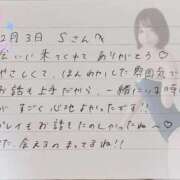 2月3日 Sさんへ
会いに来てくれてありがとう♡
やさしくて、ほんわかした雰囲気で
お話も上手だから、一緒にいる時間
がすごく心地よかったです!!
プレイもお話もたのしかったね〜♡
また会えるのまってるね!!